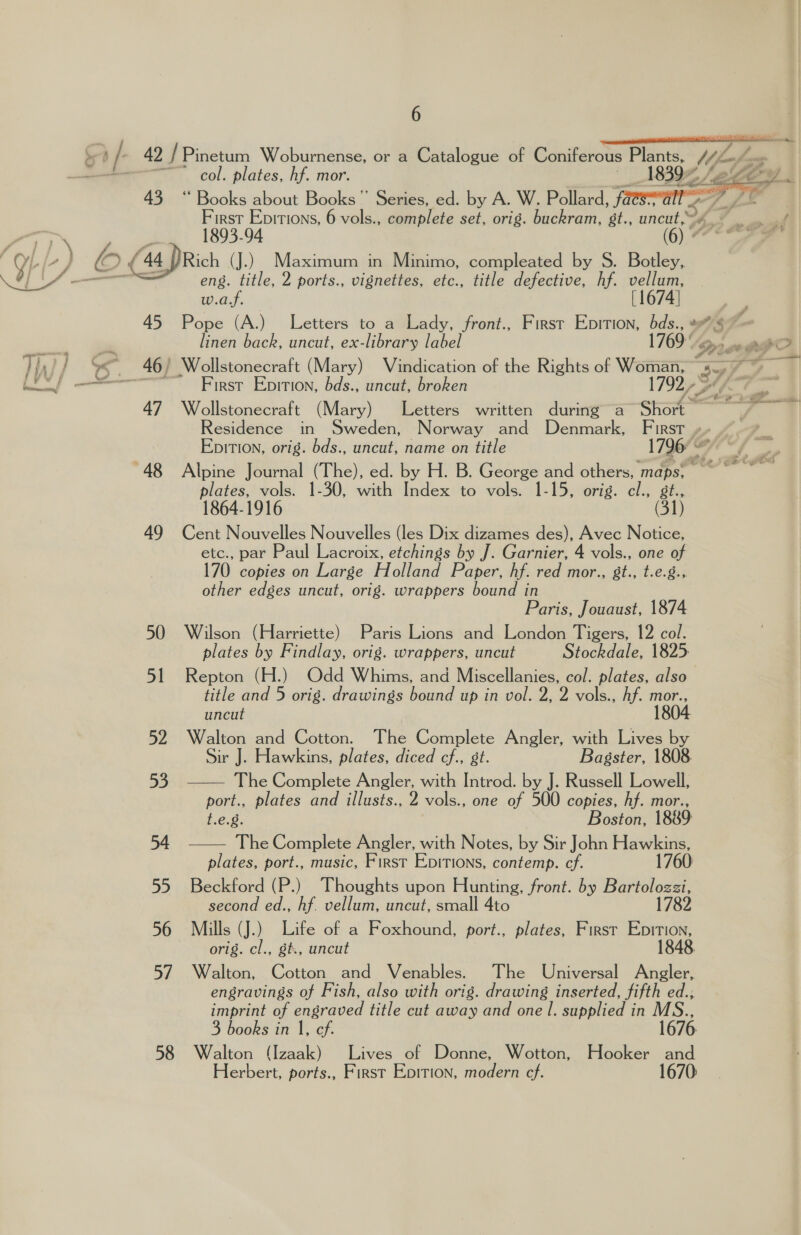 6
42 Pinetum Woburnense, or a Catalogue of Coniferous Plants,
col. plates, hf. mor. 1839
43 “Books about Books” Series, ed. by A. W. Pollard, facs., all
First Editions, 6 vols., complete set, orig. buckram, gt., uncut,
1893-94 (6)
44 Rich (J.) Maximum in Minimo, compleated by S. Botley,
eng. title, 2 ports., vignettes, etc., title defective, hf. vellum,
w.a.f. [1674]
45 Pope (A.) Letters to a Lady, front., First Edition, bds.,
linen back, uncut, ex-library label 1769
46 Wollstonecraft (Mary) Vindication of the Rights of Woman,
First Edition, bds., uncut, broken 1792
47 Wollstonecraft (Mary) Letters written during a Short
Residence in Sweden, Norway and Denmark, First
Edition, orig. bds., uncut, name on title 1796
48 Alpine Journal (The), ed. by H. B. George and others, maps,
plates, vols. 1-30, with Index to vols. 1-15, orig. cl., gt.,
1864-1916 (31)
49 Cent Nouvelles Nouvelles (les Dix dizames des), Avec Notice,
etc., par Paul Lacroix, etchings by J. Garnier, 4 vols., one of
170 copies on Large Holland Paper, hf. red mor., gt., t.e.g.,
other edges uncut, orig. wrappers bound in
Paris, Jouaust, 1874
50 Wilson (Harriette) Paris Lions and London Tigers, 12 col.
plates by Findlay, orig. wrappers, uncut Stockdale, 1825
51 Repton (H.) Odd Whims, and Miscellanies, col. plates, also
title and 5 orig. drawings bound up in vol. 2, 2 vols., hf. mor.,
uncut 1804
52 Walton and Cotton. The Complete Angler, with Lives by
Sir J. Hawkins, plates, diced cf., gt. Bagster, 1808
53 —— The Complete Angler, with Introd. by J. Russell Lowell,
port., plates and illusts., 2 vols., one of 500 copies, hf. mor.,
t.e.g. Boston, 1889
54 —— The Complete Angler, with Notes, by Sir John Hawkins,
plates, port., music, First Editions, contemp. cf. 1760
55 Beckford (P.) Thoughts upon Hunting, front. by Bartolozzi,
second ed., hf. vellum, uncut, small 4to 1782
56 Mills (J.) Life of a Foxhound, port., plates, First Edition,
orig. cl., gt., uncut 1848
57 Walton, Cotton and Venables. The Universal Angler,
engravings of Fish, also with orig. drawing inserted, fifth ed.,
imprint of engraved title cut away and one l. supplied in MS.,
3 books in 1, cf. 1676
58 Walton (Izaak) Lives of Donne, Wotton, Hooker and
Herbert, ports., First Edition, modern cf. 1670